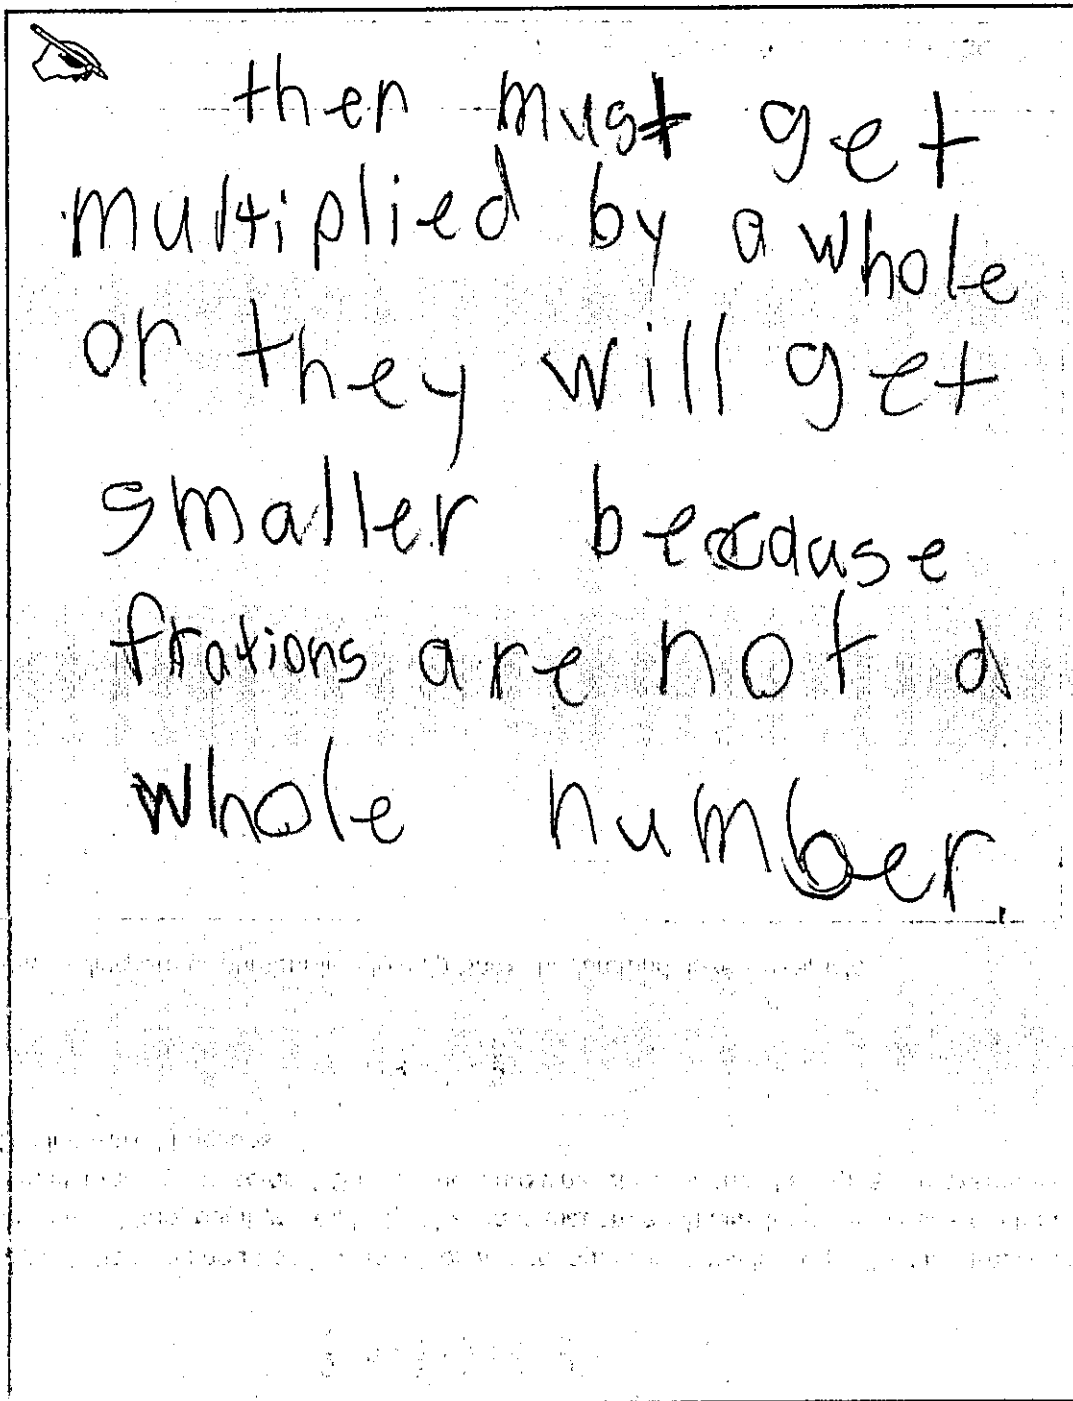 then must get
multiplied by a whole
or they will get
smaller because
frations are not a
whole number.